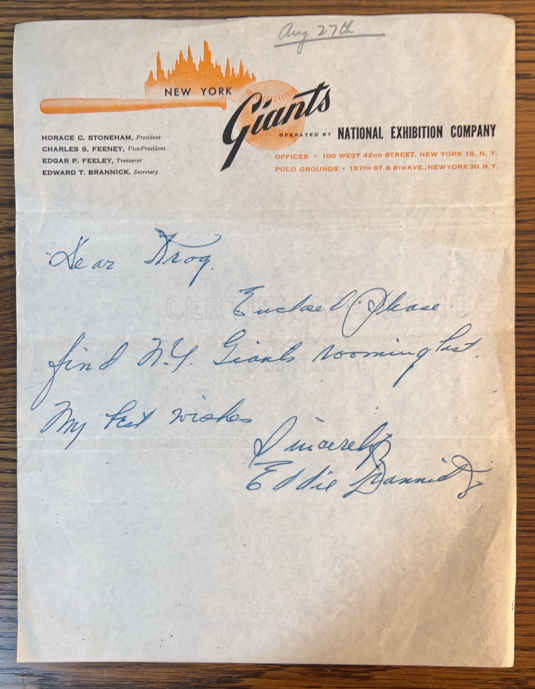 Aug 27th
NEW YORK
Giants
OPERATED BY NATIONAL EXHIBITION COMPANY
HORACE C. STONEHAM, President
CHARLES S. FEENEY, Vice-President
EDGAR P. FEELEY, Treasurer
EDWARD T. BRANNICK, Secretary
OFFICES • 100 WEST 42ND STREET, NEW YORK 18, N. Y.
POLO GROUNDS • 157TH ST. & 8TH AVE., NEW YORK 39, N. Y.
Dear
Enclosed Please
find N.Y. Giants rooming list.
My best wishes
Sincerely
Eddie Brannick